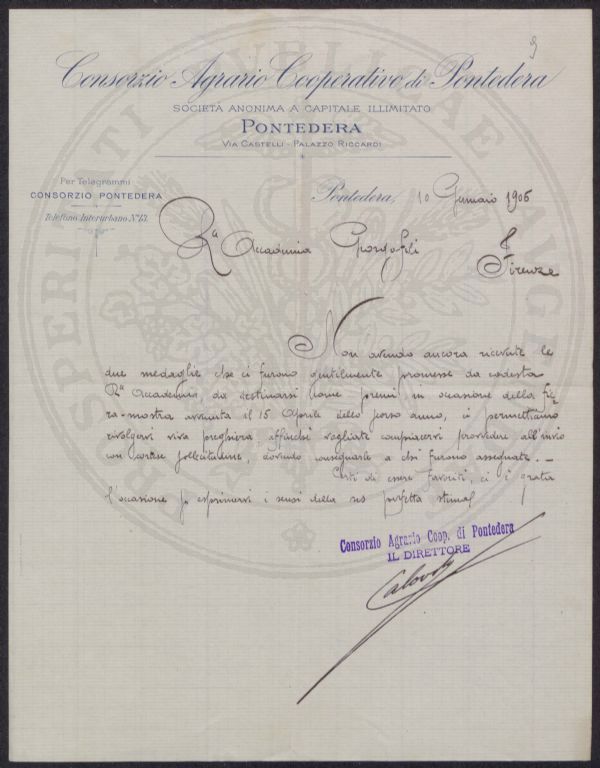 9
Consorzio Agrario Cooperativo di Pontedera
SOCIETÀ ANONIMA A CAPITALE ILLIMITATO
PONTEDERA
VIA CASTELLI - PALAZZO RICCARDI
Per Telegrammi
CONSORZIO PONTEDERA
Telefono Interurbano N° 13.
Pontedera, 10 Gennaio 1906
Rª Accademia Georgofili
Firenze
Non avendo ancora ricevute le
due medaglie che ci furono gentilmente promesse da codesta
Rª Accademia, da destinarsi come premi in occasione della fie
ra-mostra avvenuta il 15 Aprile dello scorso anno, ci permettiamo
rivolgervi viva preghiera affinchè vogliate compiacervi provvedere all'invio
con cortese sollecitudine, dovendo consegnarle a chi furono assegnate. -
Certi di essere favoriti, ci è grata
l'occasione per esprimervi i sensi della ns perfetta stima
Consorzio Agrario Coop. di Pontedera
IL DIRETTORE